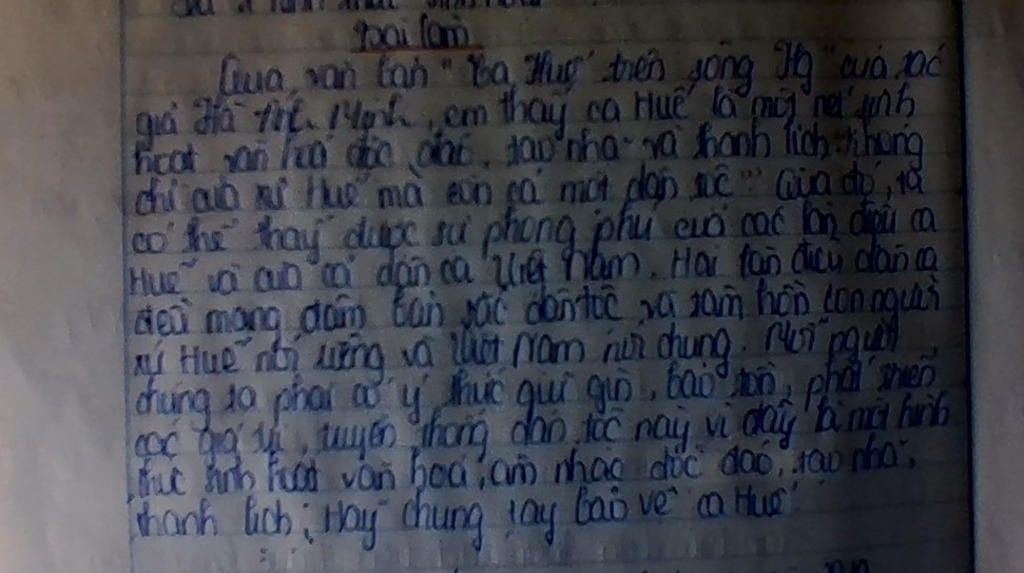 Bài làm
Qua văn bản "Ca Huế trên sông Hg" của tác
giả Hà Ánh Minh, em thấy ca Huế là một nét sinh
hoạt văn hoá độc đáo, tao nhã và thanh lịch không
chỉ của xứ Huế mà còn cả một dân tộc. Qua đó, ta
có thể thấy được sự phong phú của các làn điệu ca
Huế và của cả dân ca Việt Nam. Hai làn điệu dân ca
đều mang đậm bản sắc dân tộc và tâm hồn con người
xứ Huế nói riêng và Việt Nam nói chung. Mỗi người
chúng ta phải có ý thức giữ gìn, bảo tồn, phát triển
các giá trị, truyền thống dân tộc này vì đây là một hình
thức sinh hoạt văn hoá, âm nhạc độc đáo, tao nhã,
thanh lịch; Hãy chung tay bảo vệ ca Huế!